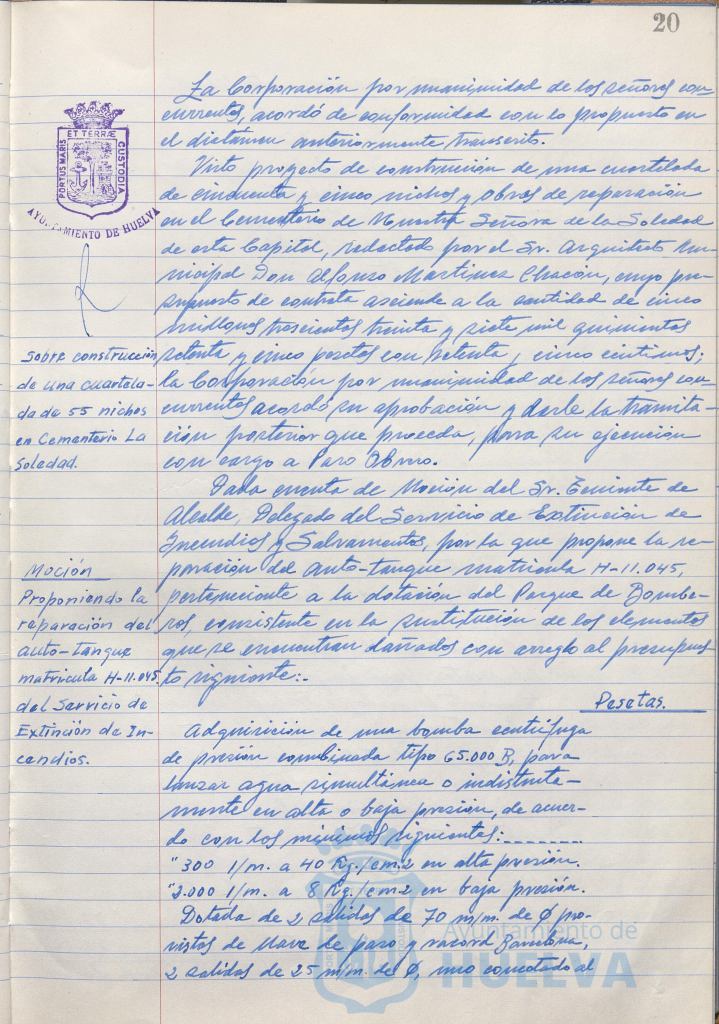 20
La Corporación por unanimidad de los señores con-
currentes, acordó de conformidad con lo propuesto en
el dictámen anteriormente transcrito.
Visto proyecto de construcción de una cuartelada
de cincuenta y cinco nichos y obras de reparación
en el Cementerio de Nuestra Señora de la Soledad
de esta Capital, redactado por el Sr. Arquitecto Mu-
nicipal Don Alfonso Martinez Chacón, cuyo pre-
supuesto de contrata asciende a la cantidad de cinco
millones trescientos treinta y siete mil quinientas
setenta y cinco pesetas con setenta y cinco centimos;
la Corporación por unanimidad de los señores con-
currentes acordó su aprobación y darle la tramita-
ción posterior que proceda, para su ejecución
con cargo a Paro Obrero.
Dada cuenta de Moción del Sr. Teniente de
Alcalde, Delegado del Servicio de Extinción de
Incendios y Salvamentos, por la que propone la re-
paración del auto-tanque matricula H-11.045,
perteneciente a la dotación del Parque de Bombe-
ros, consistente en la sustitución de los elementos
que se encuentran dañados con arreglo al presupues-
to siguiente:-
Pesetas.
Adquisición de una bomba centrífuga
de presión combinada tipo 65.000 B, para
lanzar agua simultánea o indistinta-
mente en alta o baja presión, de acuer-
do con los minimos siguientes:--------
"300 l/m. a 40 Kg./cm.2 en alta presión.
"3.000 l/m. a 8 Kg./cm2 en baja presión.
Dotada de 2 salidas de 70 m/m. de Ø pro-
vistas de llave de paso y racord Barcelona,
2 salidas de 25 m/m. de Ø, uno conectado al
PORTUS MARIS ET TERRÆ CUSTODIA
AYUNTAMIENTO DE HUELVA
Sobre construcción
de una cuartela-
da de 55 nichos
en Cementerio La
Soledad.
Moción
Proponiendo la
reparación del
auto-tanque
matricula H-11.045
del Servicio de
Extinción de In-
cendios.
Ayuntamiento de
HUELVA